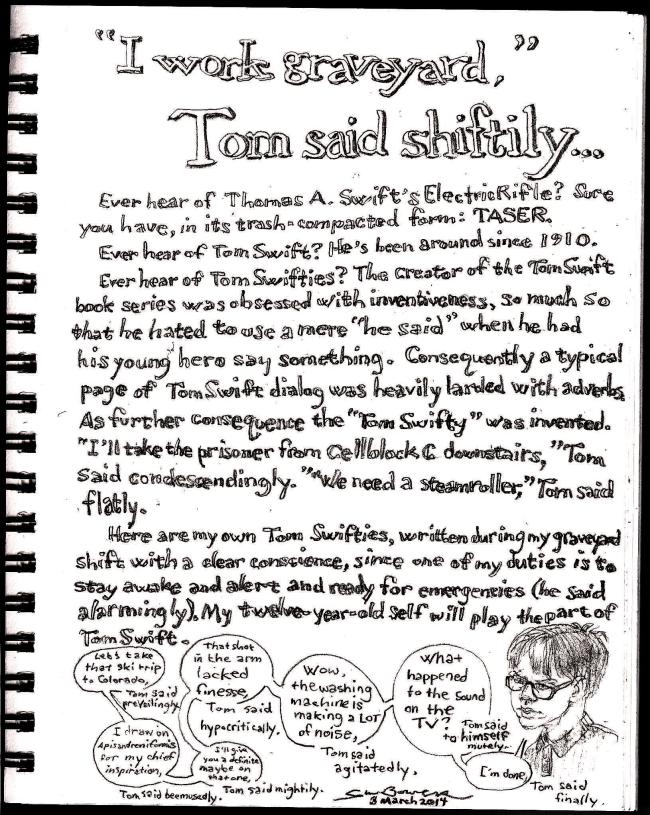 "I work graveyard,"
Tom said shiftily...
Ever hear of Thomas A. Swift's Electric Rifle? Sure
you have, in its trash-compacted form: TASER.
Ever hear of Tom Swift? He's been around since 1910.
Ever hear of Tom Swifties? The creator of the Tom Swift
book series was obsessed with inventiveness, so much so
that he hated to use a mere "he said" when he had
his young hero say something. Consequently a typical
page of Tom Swift dialog was heavily larded with adverbs.
As further consequence the "Tom Swifty" was invented.
"I'll take the prisoner from Cellblock C downstairs," Tom
said condescendingly. ""We need a steamroller," Tom said
flatly.
Here are my own Tom Swifties, written during my graveyard
shift with a clear conscience, since one of my duties is to
stay awake and alert and ready for emergencies (he said
alarmingly). My twelve-year-old self will play the part of
Tom Swift.
Let's take
that ski trip
to Colorado,
Tom said
prevailingly.
I draw on
Apis andreniformis
for my chief
inspiration,
Tom said beemusedly.
That shot
in the arm
lacked
finesse,
Tom said
hypocritically.
I'll give
you a definite
maybe on
that one,
Tom said mightily.
Wow,
the washing
machine is
making a LOT
of noise,
Tom said
agitatedly.
What
happened
to the sound
on the
TV? Tom said
to himself
mutely.
I'm done,
Tom said
finally.
3 March 2014